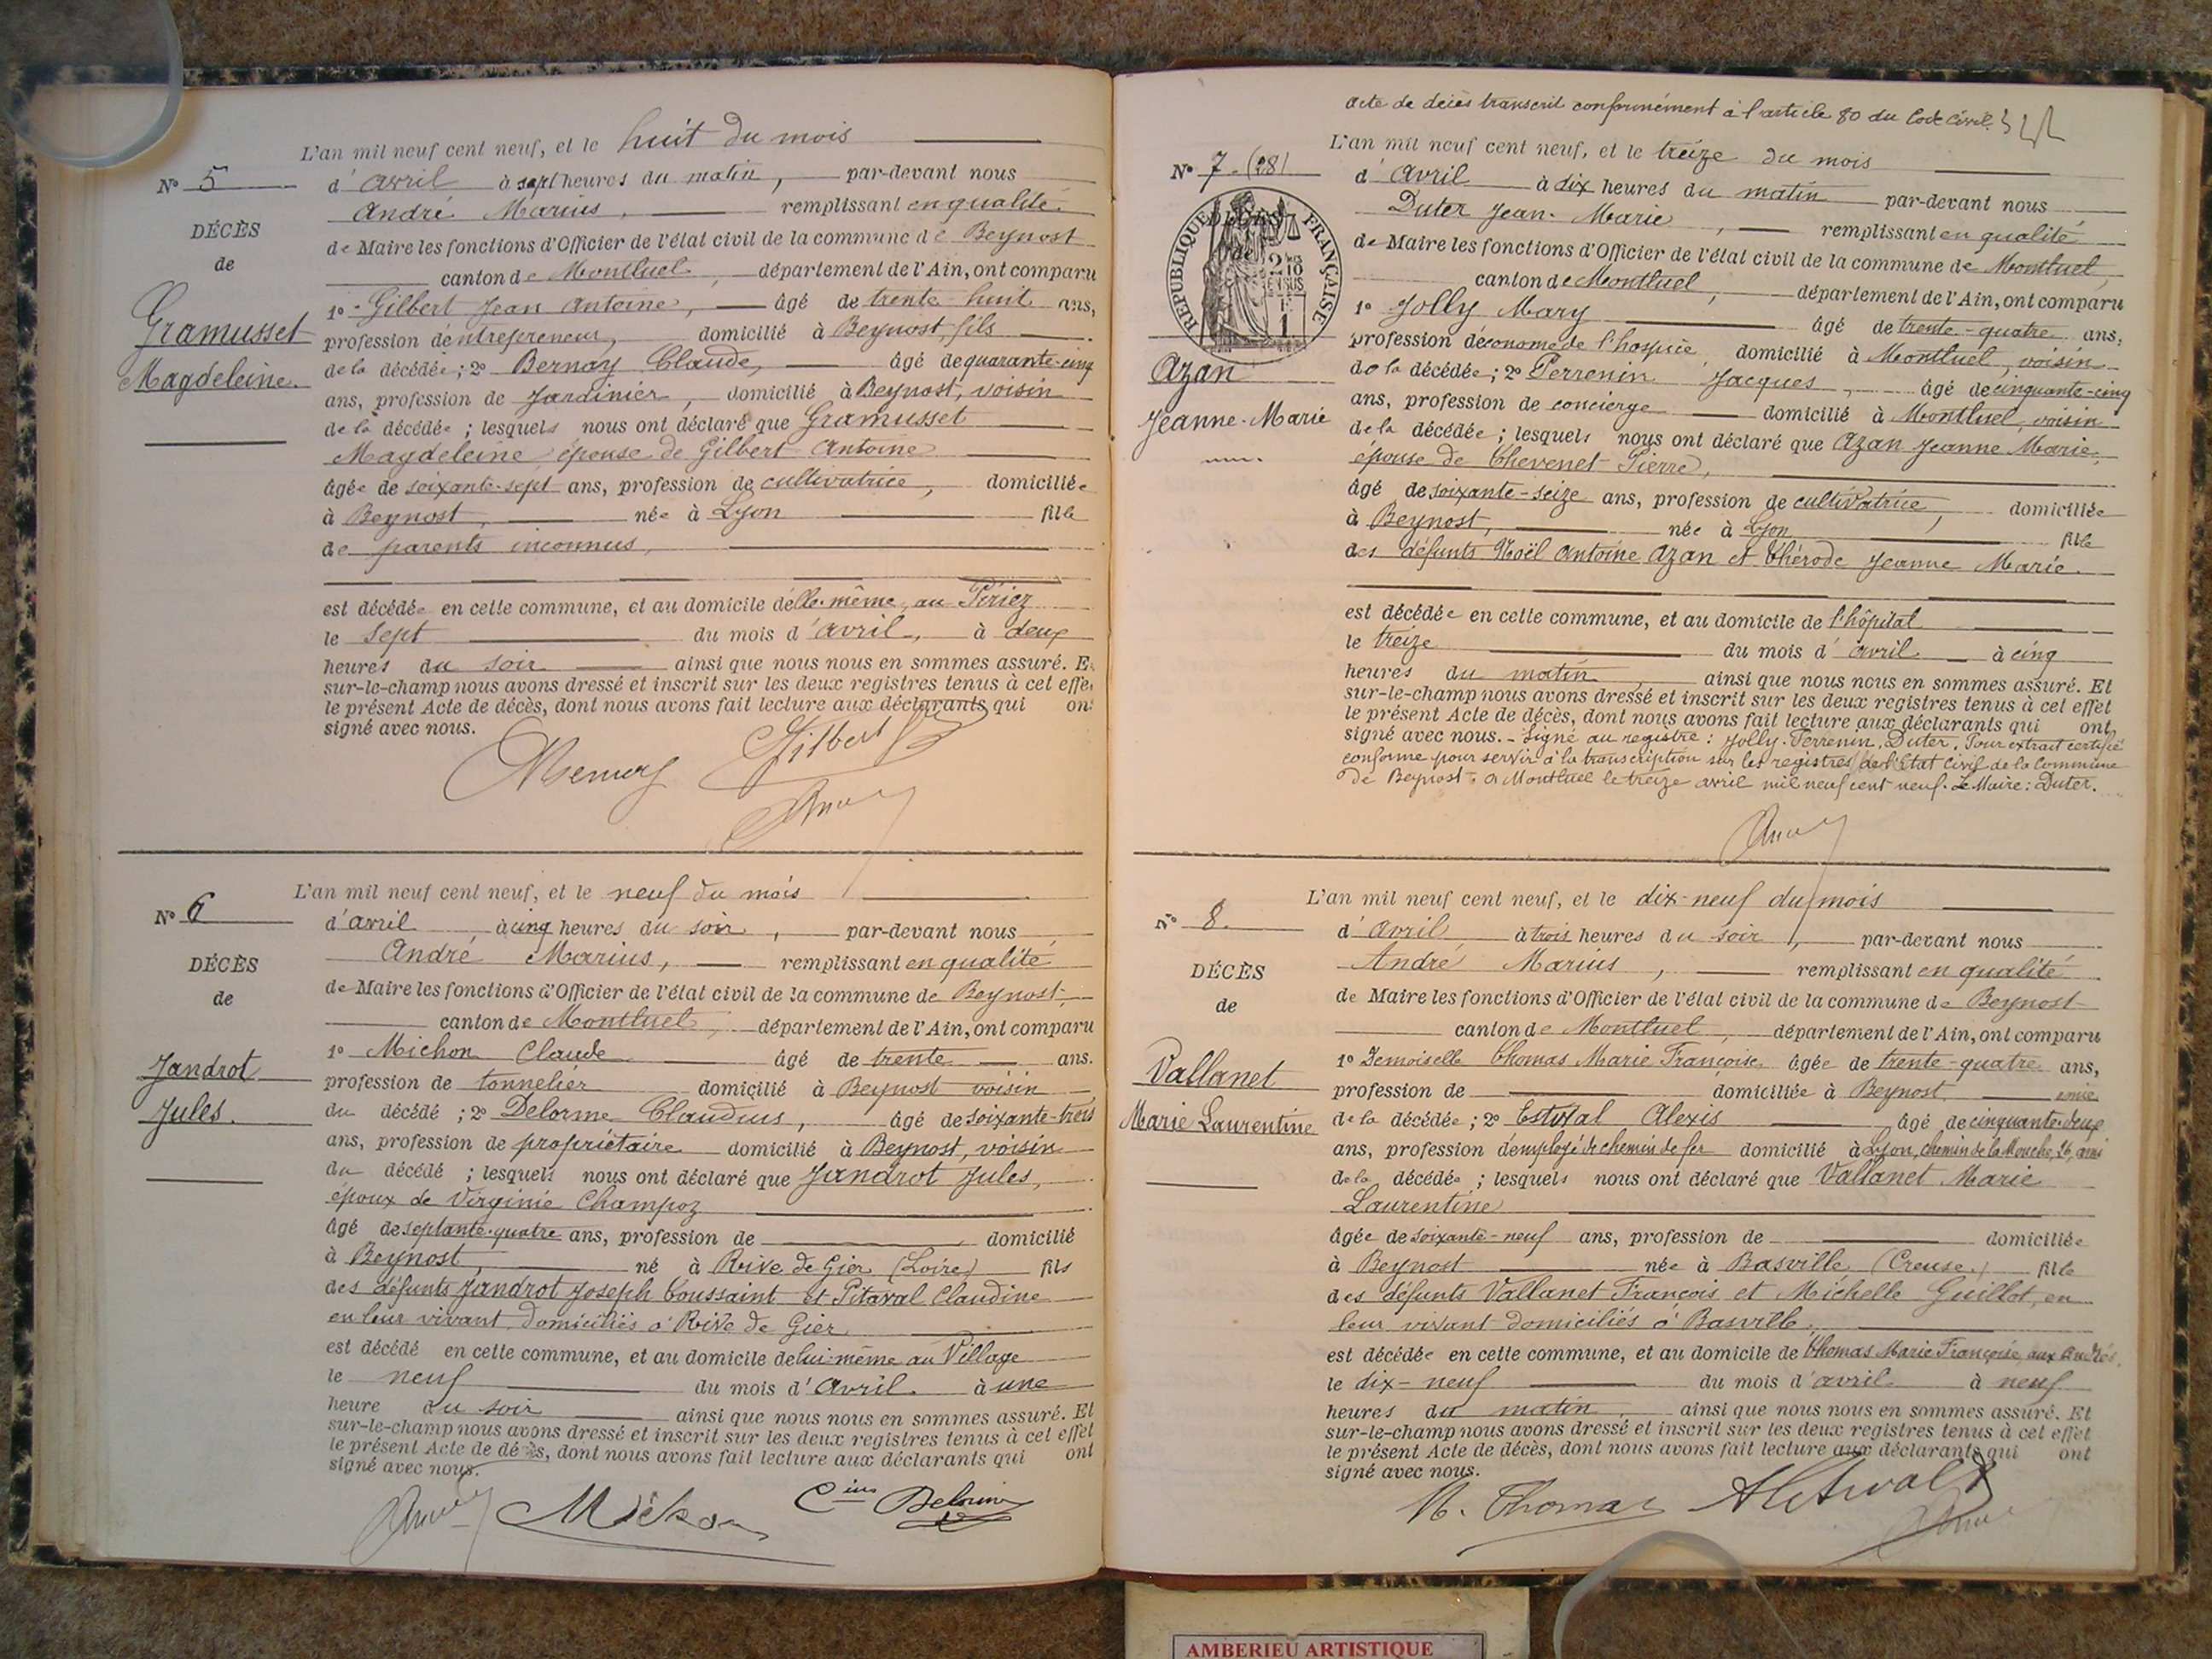 L'an mil neuf cent neuf, et le huit du mois
N° 5
d'avril à sept heures du matin, par-devant nous
André Marius, remplissant en qualité
DÉCÈS
de Maire les fonctions d'Officier de l'état civil de la commune de Beynost
de
canton de Montluel, département de l'Ain, ont comparu
1° Gilbert Jean Antoine, âgé de trente-huit ans,
Gramusset
profession d'entrepreneur, domicilié à Beynost, fils
Magdeleine.
de la décédée ; 2° Bernay Claude, âgé de quarante-cinq
ans, profession de Jardinier, domicilié à Beynost, voisin
de la décédée ; lesquels nous ont déclaré que Gramusset
Magdeleine épouse de Gilbert Antoine
âgée de soixante-sept ans, profession de cultivatrice, domiciliée
à Beynost, née à Lyon fille
de parents inconnus,
est décédée en cette commune, et au domicile d'elle-même, au Piriez
le sept du mois d'avril, à deux
heures du soir ainsi que nous nous en sommes assuré. Et
sur-le-champ nous avons dressé et inscrit sur les deux registres tenus à cet effet
le présent Acte de décès, dont nous avons fait lecture aux déclarants qui ont
signé avec nous.
Gilbert
L'an mil neuf cent neuf, et le neuf du mois
N° 6
d'avril à cinq heures du soir, par-devant nous
André Marius, remplissant en qualité
DÉCÈS
de Maire les fonctions d'Officier de l'état civil de la commune de Beynost
de
canton de Montluel, département de l'Ain, ont comparu
1° Michon Claude âgé de trente ans.
Jandrot
profession de tonnelier domicilié à Beynost voisin
Jules.
du décédé ; 2° Delorme Claudius, âgé de soixante-trois
ans, profession de propriétaire domicilié à Beynost, voisin
du décédé ; lesquels nous ont déclaré que Jandrot Jules,
époux de Virginie Champoz
âgé de septante-quatre ans, profession de domicilié
à Beynost, né à Rive de Gier (Loire) fils
des défunts Jandrot Joseph Toussaint et Pitaval Claudine
en leur vivant domiciliés à Rive de Gier
est décédé en cette commune, et au domicile de lui-même au Village
le neuf du mois d'avril. à une
heure du soir ainsi que nous nous en sommes assuré. Et
sur-le-champ nous avons dressé et inscrit sur les deux registres tenus à cet effet
le présent Acte de décès, dont nous avons fait lecture aux déclarants qui ont
signé avec nous.
Michon Cius Delorme
acte de décès transcrit conformément à l'article 80 du Code Civil.
L'an mil neuf cent neuf, et le treize du mois
N° 7 - (28)
d'avril à dix heures du matin par-devant nous
Duter Jean-Marie, remplissant en qualité
DÉCÈS
de
RÉPUBLIQUE FRANÇAISE
de Maire les fonctions d'Officier de l'état civil de la commune de Montluel,
canton de Montluel, département de l'Ain, ont comparu
1° Jolly Mary âgé de trente-quatre ans,
profession d'économe de l'hospice domicilié à Montluel, voisin
Azan
de la décédée ; 2° Perrenin Jacques, âgé de cinquante-cinq
ans, profession de concierge domicilié à Montluel, voisin
Jeanne-Marie
de la décédée ; lesquels nous ont déclaré que Azan Jeanne Marie,
épouse de Chevenet Pierre,
âgé de soixante-seize ans, profession de cultivatrice, domiciliée
à Beynost, née à Lyon fille
des défunts Noël Antoine Azan et Thérode Jeanne Marie.
est décédée en cette commune, et au domicile de l'hôpital
le treize du mois d'avril à cinq
heures du matin, ainsi que nous nous en sommes assuré. Et
sur-le-champ nous avons dressé et inscrit sur les deux registres tenus à cet effet
le présent Acte de décès, dont nous avons fait lecture aux déclarants qui ont
signé avec nous. - Signé au registre : Jolly. Perrenin, Duter. Pour extrait certifié
conforme pour servir à la transcription sur les registres de l'Etat Civil de la Commune
de Beynost. à Montluel le treize avril mil neuf cent neuf. Le Maire : Duter.
L'an mil neuf cent neuf, et le dix-neuf du mois
N° 8.
d'avril à trois heures du soir, par-devant nous
André Marius, remplissant en qualité
DÉCÈS
de Maire les fonctions d'Officier de l'état civil de la commune de Beynost
de
canton de Montluel, département de l'Ain, ont comparu
1° Demoiselle Thomas Marie Françoise âgée de trente-quatre ans,
Vallanet
profession de domiciliée à Beynost amie
Marie Laurentine
de la décédée ; 2° Estival Alexis âgé de cinquante-deux
ans, profession d'employé de chemin de fer domicilié à Lyon, chemin de la Mouche, 26, ami
de la décédée ; lesquels nous ont déclaré que Vallanet Marie
Laurentine
âgée de soixante-neuf ans, profession de domiciliée
à Beynost née à Basville (Creuse.) fille
des défunts Vallanet François et Michelle Guillot, en
leur vivant domiciliés à Basville.
est décédée en cette commune, et au domicile de Thomas Marie Françoise, aux Andrés,
le dix-neuf du mois d'avril à neuf
heures du matin, ainsi que nous nous en sommes assuré. Et
sur-le-champ nous avons dressé et inscrit sur les deux registres tenus à cet effet
le présent Acte de décès, dont nous avons fait lecture aux déclarants qui ont
signé avec nous.
M. Thomas
AMBERIEU ARTISTIQUE